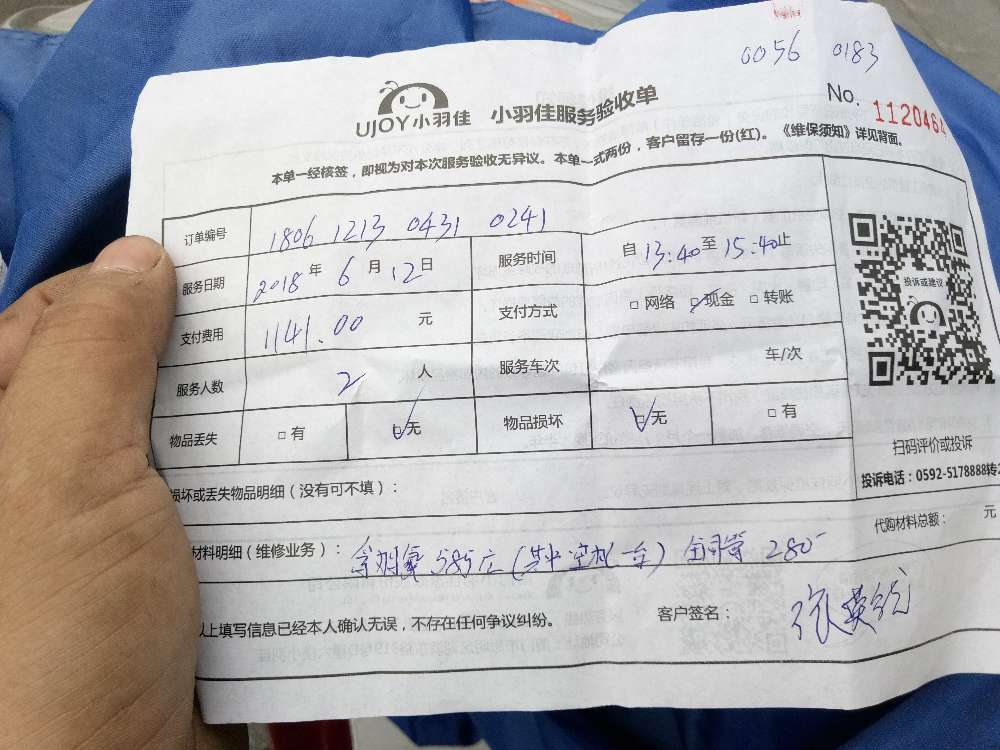 0056 0183
UJOY小羽佳 小羽佳服务验收单
No. 1120464
本单一经核签，即视为对本次服务验收无异议。本单一式两份，客户留存一份(红)。《维保须知》详见背面。
订单编号 1806 1213 0431 0241
服务日期 2018年 6月 12日 服务时间 自13:40至15:40止
支付费用 1141.00 元 支付方式 □网络 □现金 □转账
服务人数 2 人 服务车次 车/次
物品丢失 □有 □无 物品损坏 □无 □有
投诉或建议
扫码评价或投诉
投诉电话：0592-5178888转2
损坏或丢失物品明细（没有可不填）：
代购材料总额： 元
材料明细（维修业务）： 280
以上填写信息已经本人确认无误，不存在任何争议纠纷。 客户签名：